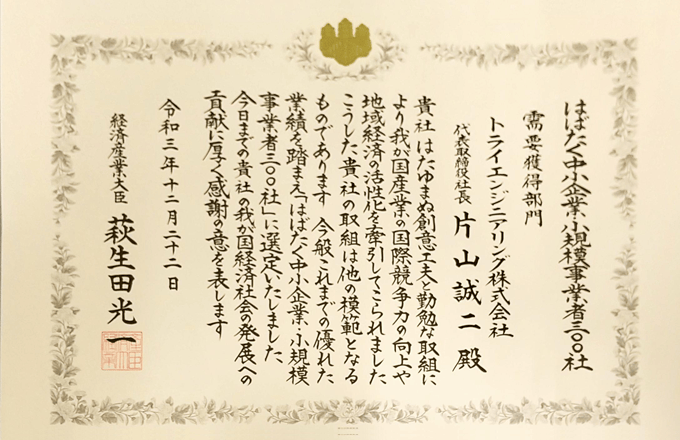 はばたく中小企業・小規模事業者三〇〇社
需要獲得部門
トライエンジニアリング株式会社
代表取締役社長 片山誠二 殿
貴社はたゆまぬ創意工夫と勤勉な取組に
より我が国産業の国際競争力の向上や
地域経済の活性化を牽引してこられました
こうした貴社の取組は他の模範となる
ものであります 今般これまでの優れた
業績を踏まえ「はばたく中小企業・小規模
事業者三〇〇社」に選定いたしました
今日までの貴社の我が国経済社会の発展への
貢献に厚く感謝の意を表します
令和三年十二月二十二日
経済産業大臣 萩生田光一